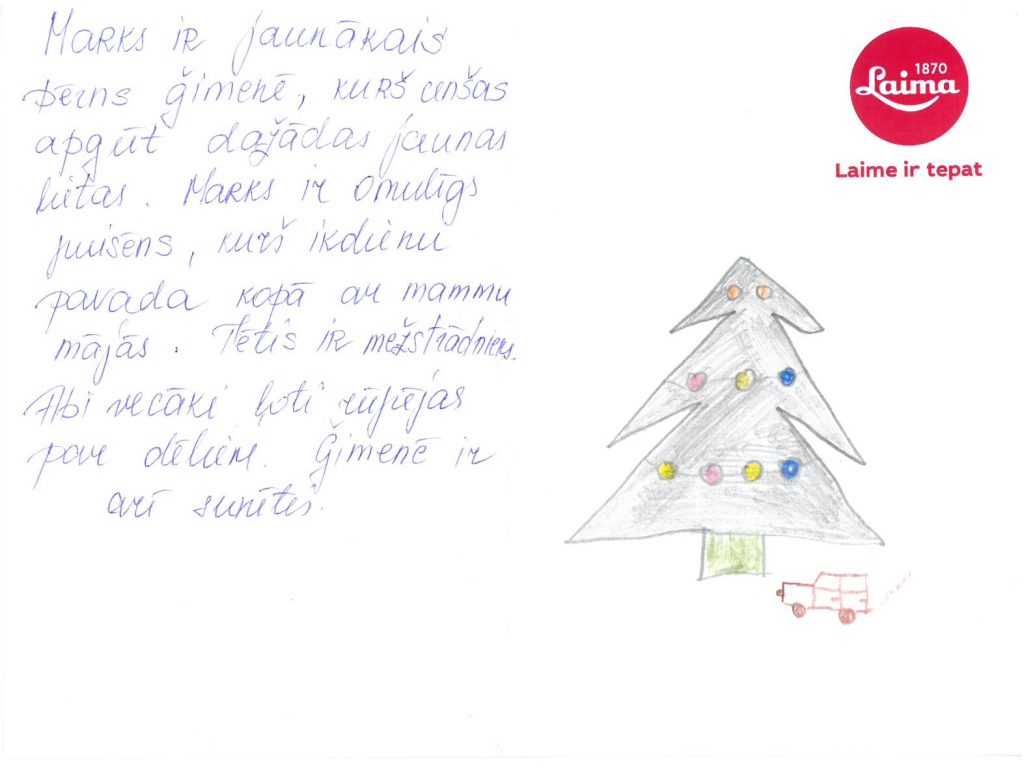 Marks ir jaunākais
bērns ģimenē, kurš cenšas
apgūt dažādas jaunas
lietas. Marks ir omulīgs
puisēns, kurš ikdienu
pavada kopā ar mammu
mājās. Tētis ir mežstrādnieks.
Abi vecāki ļoti rūpējas
par dēliem. Ģimenē ir
arī sunītis.
1870
Laima
Laime ir tepat